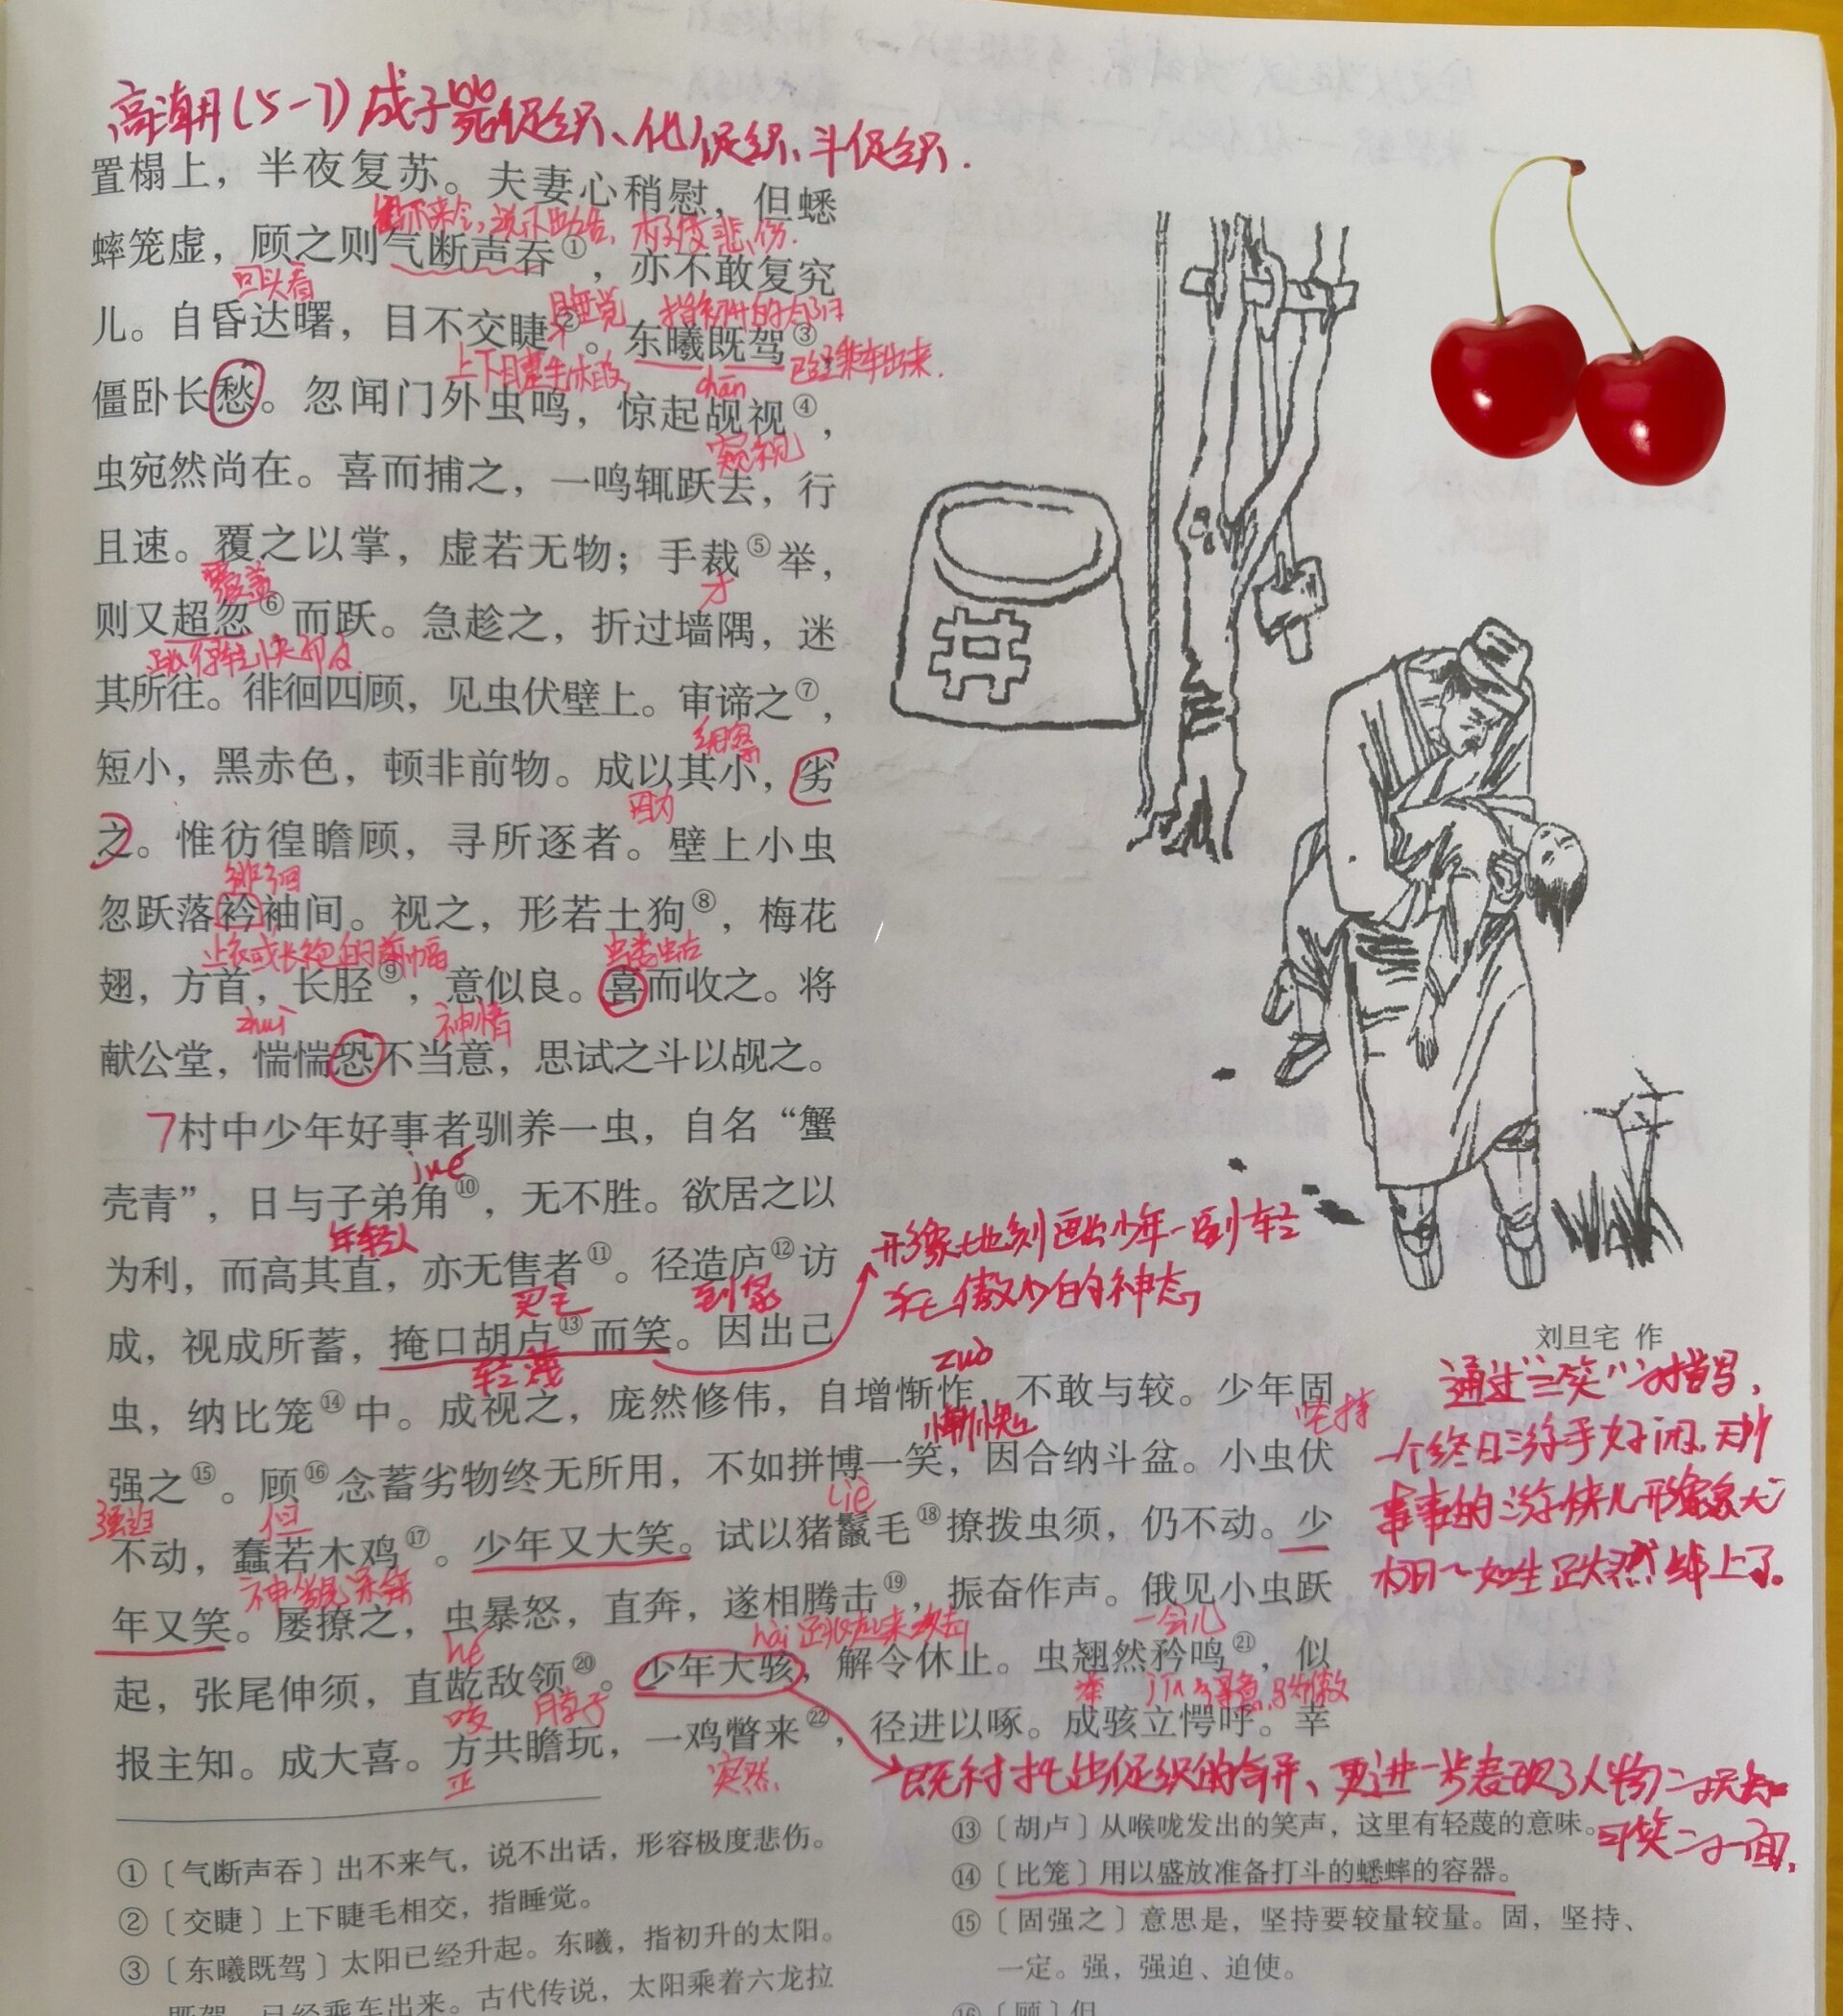 高潮(5-7)成子毙促织、化促织、斗促织.
置榻上，半夜复苏。夫妻心稍慰，但蟋
出不来气，说不出话，极度悲伤.
蟀笼虚，顾之则气断声吞①，亦不敢复究
回头看
睡觉 指初升的太阳
儿。自昏达曙，目不交睫②。东曦既驾③，
上下目睫毛 已经乘车出来.
chān
僵卧长愁。忽闻门外虫鸣，惊起觇视④，
窥视
虫宛然尚在。喜而捕之，一鸣辄跃去，行
且速。覆之以掌，虚若无物；手裁⑤举，
覆盖 才
则又超忽⑥而跃。急趁之，折过墙隅，迷
其所往。徘徊四顾，见虫伏壁上。审谛之⑦，
细察
短小，黑赤色，顿非前物。成以其小，劣
因为
之。惟彷徨瞻顾，寻所逐者。壁上小虫
徘徊
忽跃落衿袖间。视之，形若土狗⑧，梅花
上衣或长袍的前幅
翅，方首，长胫⑨，意似良。喜而收之。将
zhuì 神情
献公堂，惴惴恐不当意，思试之斗以觇之。
7村中少年好事者驯养一虫，自名“蟹
jué
壳青”，日与子弟角⑩，无不胜。欲居之以
年轻人
为利，而高其直，亦无售者⑪。径造庐⑫访
买主 到家
成，视成所蓄，掩口胡卢⑬而笑。因出己
轻蔑
形象地刻画出少年一副轻
狂傲少的神态
刘旦宅 作
zuò
虫，纳比笼⑭中。成视之，庞然修伟，自增惭怍，不敢与较。少年固
惭愧 坚持
强之⑮。顾⑯念蓄劣物终无所用，不如拼博一笑，因合纳斗盆。小虫伏
强迫 但 liè
不动，蠢若木鸡⑰。少年又大笑。试以猪鬣毛⑱撩拨虫须，仍不动。少
神貌呆笨
年又笑。屡撩之，虫暴怒，直奔，遂相腾击⑲，振奋作声。俄见小虫跃
hé hài 一会儿
起，张尾伸须，直龁敌领⑳。少年大骇，解令休止。虫翘然矜鸣㉑，似
咬 脖子 举 jīn
报主知。成大喜。方共瞻玩，一鸡瞥来㉒，径进以啄。成骇立愕呼。幸
正 突然.
通过“三笑”的描写，
一个终日游手好闲、无所
事事的游侠儿形象
栩栩如生跃然纸上了。
既衬托出促织的奇异、更进一步表现了人物
可笑的一面.
①〔气断声吞〕出不来气，说不出话，形容极度悲伤。
②〔交睫〕上下睫毛相交，指睡觉。
③〔东曦既驾〕太阳已经升起。东曦，指初升的太阳。
既驾，已经乘车出来。古代传说，太阳乘着六龙拉
⑬〔胡卢〕从喉咙发出的笑声，这里有轻蔑的意味。
⑭〔比笼〕用以盛放准备打斗的蟋蟀的容器。
⑮〔固强之〕意思是，坚持要较量较量。固，坚持、
一定。强，强迫、迫使。
⑯〔顾〕但